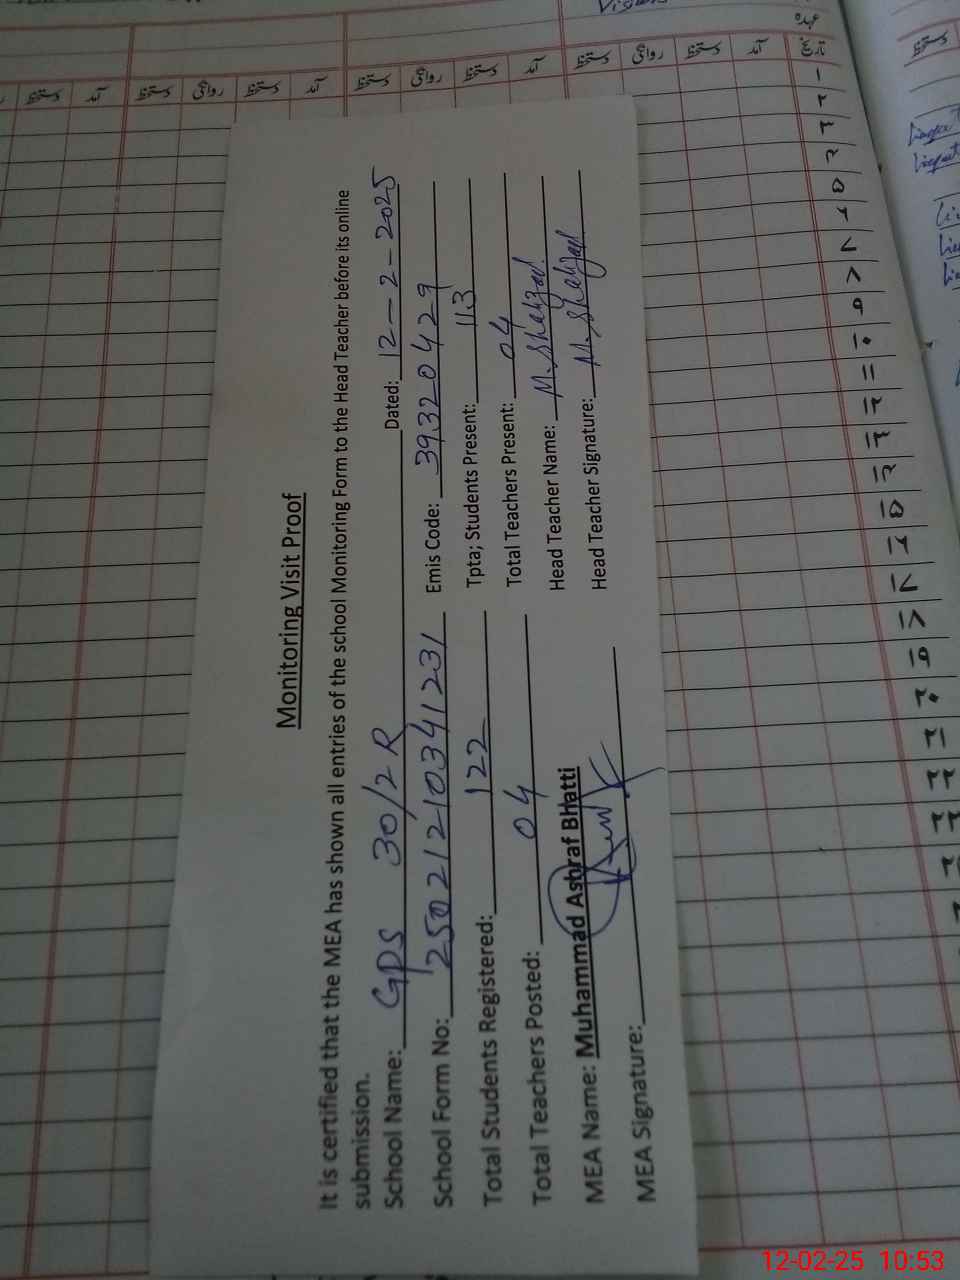 Monitoring Visit Proof
It is certified that the MEA has shown all entries of the school Monitoring Form to the Head Teacher before its online
submission.
School Name: GPS 30/2R Dated: 12-2-2025
School Form No: 2502121034 1231 Emis Code: 39320429
Total Students Registered: 122 Tpta; Students Present: 113
Total Teachers Posted: 04 Total Teachers Present: 04
MEA Name: Muhammad Ashraf Bhatti Head Teacher Name: M. Shahzad
MEA Signature: Head Teacher Signature: M. Shahzad
عہدہ
تاریخ آمد دستخط روانگی دستخط آمد دستخط روانگی دستخط آمد دستخط روانگی دستخط آمد دستخط
۱
۲
۳
۴
۵
۶
۷
۸
۹
۱۰
۱۱
۱۲
۱۳
۱۴
۱۵
۱۶
۱۷
۱۸
۱۹
۲۰
۲۱
۲۲
۲۳
12-02-25 10:53